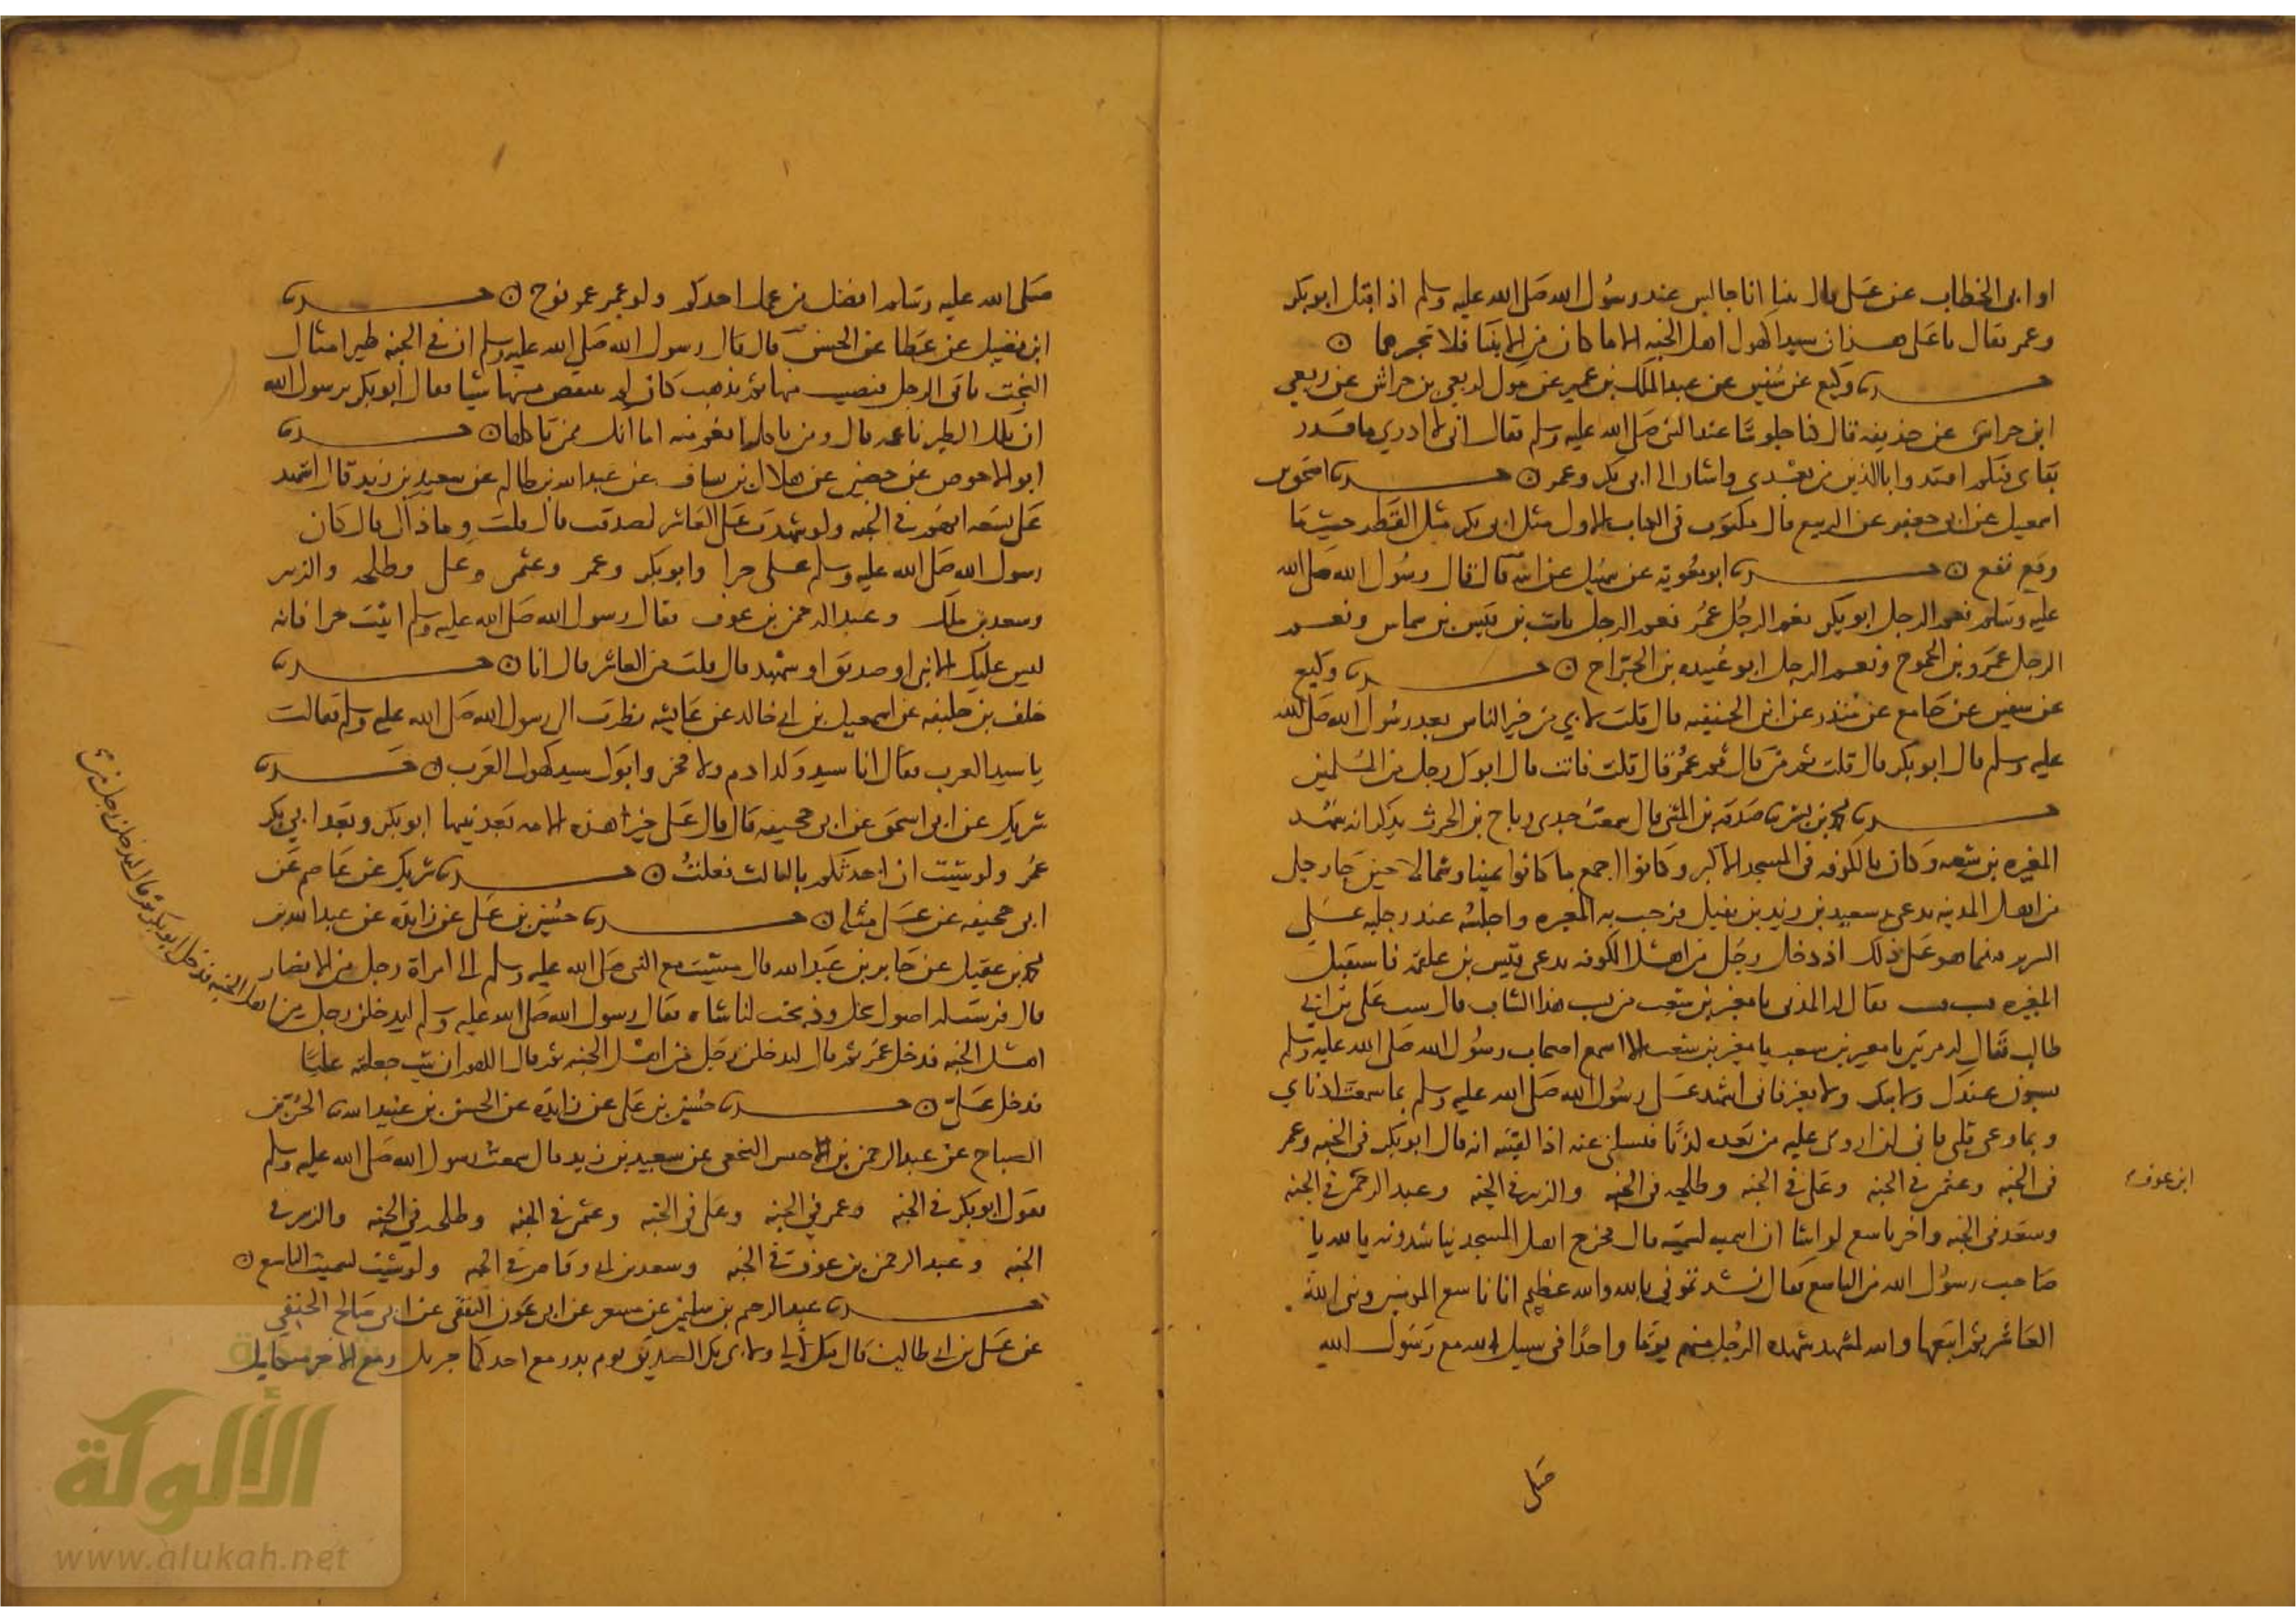 او ابى الخطاب عن على قال بينا انا جالس عند رسول الله صلى الله عليه وسلم اذ اقبل ابو بكر
وعمر فقال يا على هذان سيدا كهول اهل الجنه الا ما كان من الانبيا فلا تخبرهما ٥
حدثنا وكيع عن سفين عن عبد الملك بن عمير عن مولى لربعي بن حراش عن ربعي
ابن حراش عن حذيفه قال كنا جلوسا عند النبى صلى الله عليه وسلم فقال انى لا ادري ما قدر
بقاى فيكم اقتدوا بالذين من بعدى واشار الى ابى بكر وعمر ٥ حدثنا اسحق بن
اسمعيل عن ابى جعفر عن الربيع قال مكتوب فى الكتاب الاول مثل ابو بكر مثل القطر حيث ما
وقع نفع ٥ حدثنا ابو معويه عن سهيل عن ابيه قال قال رسول الله صلى الله
عليه وسلم نعم الرجل ابو بكر نعم الرجل عمر نعم الرجل ثابت بن قيس بن شماس ونعم
الرجل عمرو بن الجموح ونعم الرجل ابو عبيده بن الجراح ٥ حدثنا وكيع
عن سفين عن جامع عن منذر عن ابن الحنفيه قال قلت لابي من خير الناس بعد رسول الله صلى الله
عليه وسلم قال ابو بكر قال قلت ثم من قال ثم عمر قال قلت فانت قال ابوك رجل من المسلمين
حدثنا محمد بن بشر نا صدقه بن المثنى قال سمعت جدى رباح بن الحرث يذكر انه شهد
المغيره بن شعبه وكان بالكوفه فى المسجد الاكبر وكانوا اجمع ما كانوا يمينا وشمالا حين جا رجل
من اهل المدينه يدعى سعيد بن زيد بن نفيل فرحب به المغيره واجلسه عند رجليه على
السرير فبينما هو على ذلك اذ دخل رجل من اهل الكوفه يدعى قيس بن علقمه فاستقبل
المغيره فسب فسب فقال له المدنى يا مغير بن شعب من يسب هذا الشاب قال يسب على بن ابي
طالب فقال له مرتين يا مغير بن شعب يا مغير بن شعب الا اسمع اصحاب رسول الله صلى الله عليه وسلم
يسبون عندك ولا تنكر ولا تغير فانى اشهد على رسول الله صلى الله عليه وسلم بما سمعت اذناي
وبما وعى قلبى فانى لن اروى عليه من بعده كذبا فيسلنى عنه اذا لقيته انه قال ابو بكر فى الجنه وعمر
فى الجنه وعثمن فى الجنه وعلى فى الجنه وطلحه فى الجنه والزبير فى الجنه وعبد الرحمن فى الجنه
ابن عوف
وسعد فى الجنه واخر تاسع لو اشا ان اسميه لسميته قال فخرج اهل المسجد يناشدونه بالله يا
صاحب رسول الله من التاسع فقال نشدتمونى بالله والله عظيم انا تاسع المومنين ونبى الله
العاشر ثم اتبعها والله لمشهد شهده الرجل منهم يوما واحدا فى سبيل الله مع رسول الله
صلى
صلى الله عليه وسلم افضل من عمل احدكم ولو عمر عمر نوح ٥ حدثنا
ابن فضيل عن عطا عن الحسن قال قال رسول الله صلى الله عليه وسلم ان فى الجنه طيرا امثال
البخت ياتى الرجل فيصيب منها ثم يذهب كان لم ينقص منها شيا فقال ابو بكر يرسول الله
ان تلك الطير ناعمه قال ومن ياكلها انعم منه اما انك ممن ياكلها ٥ حدثنا
ابو الاحوص عن حصين عن هلال بن يساف عن عبد الله بن ظالم عن سعيد بن زيد قال اشهد
على تسعه انهم فى الجنه ولو شهدت على العاشر لصدقت قال قلت وما ذاك قال كان
رسول الله صلى الله عليه وسلم على حرا وابو بكر وعمر وعثمن وعلى وطلحه والزبير
وسعد بن ملك وعبد الرحمن بن عوف فقال رسول الله صلى الله عليه وسلم اثبت حرا فانه
ليس عليك الا نبى او صديق او شهيد قال قلت من العاشر قال انا ٥ حدثنا
خلف بن خليفه عن اسمعيل بن ابى خالد عن عايشه نظرت الى رسول الله صلى الله عليه وسلم فقالت
يا سيد العرب فقال انا سيد ولد ادم ولا فخر وابوك سيد كهول العرب ٥ حدثنا
شريك عن ابى اسحق عن ابى جحيفه قال قال على خير هذه الامه بعد نبيها ابو بكر وبعد ابى بكر
عمر ولو شيت ان احدثكم بالثالث فعلت ٥ حدثنا شريك عن عاصم عن
ابى جحيفه عن على مثله ٥ حدثنا حسين بن على عن زايده عن عبد الله بن
محمد بن عقيل عن جابر بن عبد الله قال مشيت مع النبى صلى الله عليه وسلم الى امراة رجل من الانصار
قال فرشت لنا اصول نخل وذبحت لنا شاه فقال رسول الله صلى الله عليه وسلم ليدخلن رجل من
اهل الجنه فدخل ابو بكر ثم قال ليدخلن رجل من
اهل الجنه فدخل عمر ثم قال ليدخلن رجل من اهل الجنه ثم قال اللهم ان شيت جعلته عليا
فدخل على ٥ حدثنا حسين بن على عن زايده عن الحسن بن عبيد الله نا الحر بن
الصباح عن عبد الرحمن بن الاخنس النخعى عن سعيد بن زيد قال سمعت رسول الله صلى الله عليه وسلم
يقول ابو بكر فى الجنه وعمر فى الجنه وعلى فى الجنه وعثمن فى الجنه وطلحه فى الجنه والزبير فى
الجنه وعبد الرحمن بن عوف فى الجنه وسعد بن ابى وقاص فى الجنه ولو شيت لسميت التاسع ٥
حدثنا عبد الرحيم بن سليمن عن مسعر عن ابى عون الثقفى عن ابى صالح الحنفي
عن على بن ابى طالب قال قيل لى ولابى بكر الصديق يوم بدر مع احدكما جبريل ومع الاخر ميكايل
الألوكة
www.alukah.net